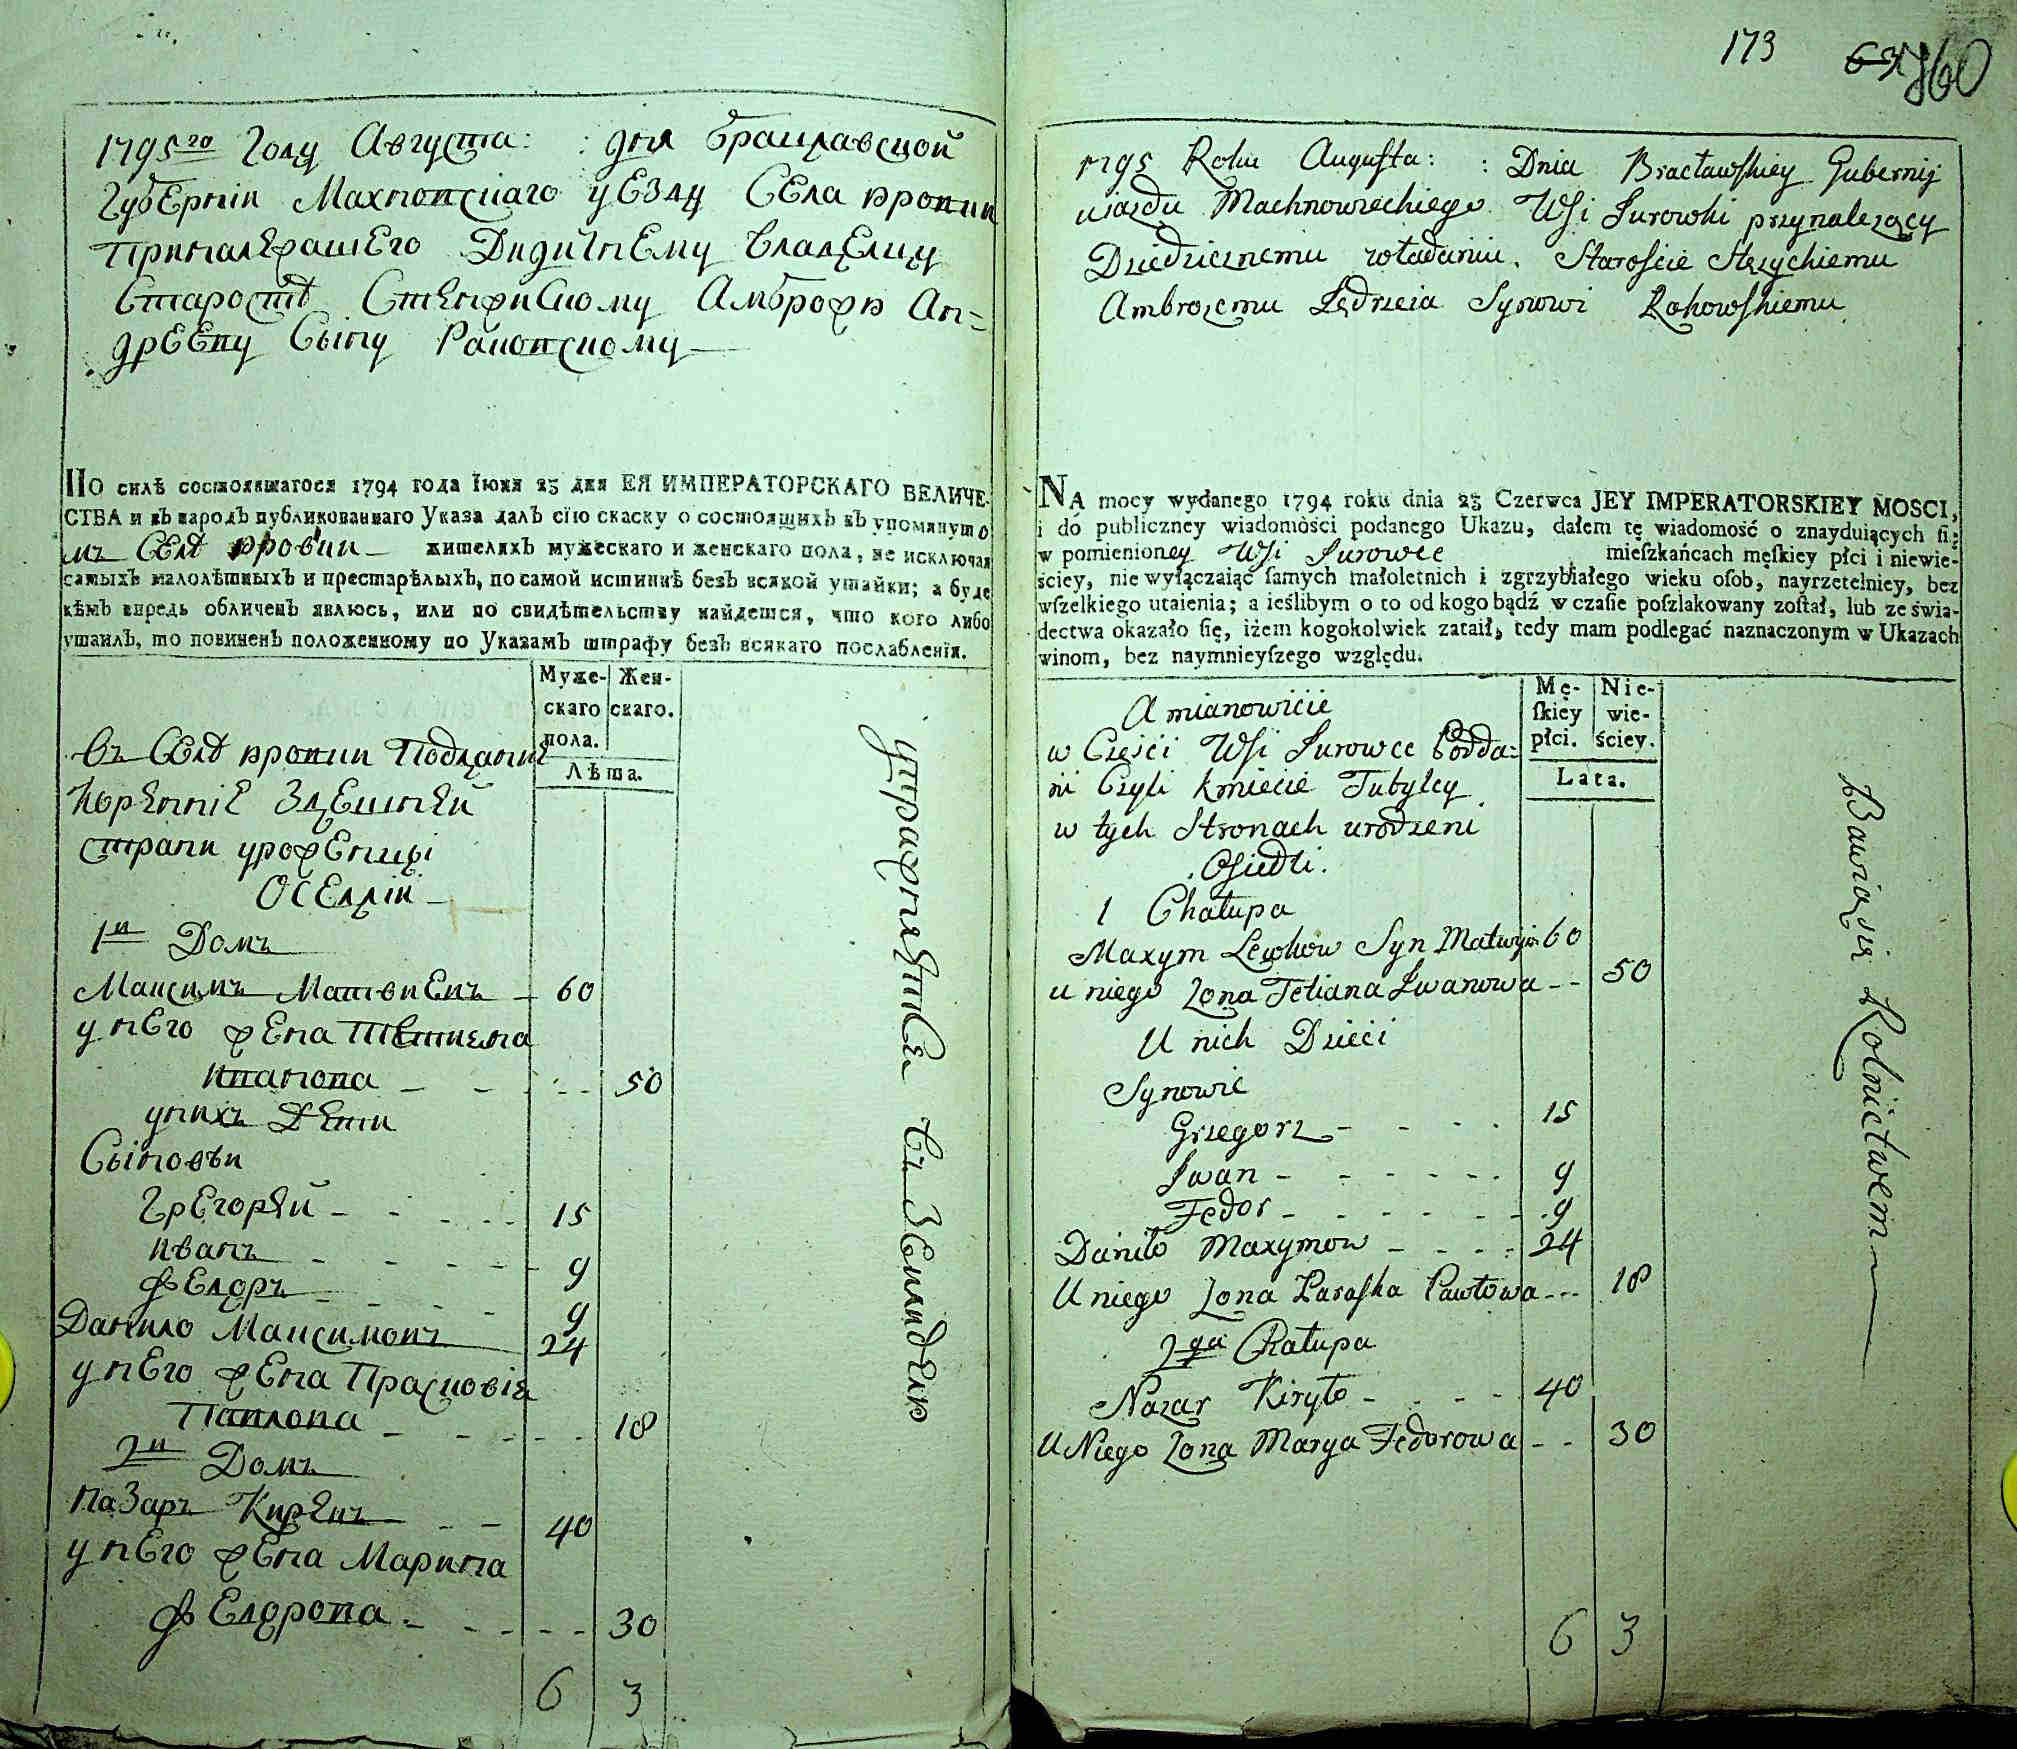 1795го Году Августа: : дня Брацлавской
Губернии Махновскаго уезду Села Юровки
Принадлежащего Дидичнему Владелцу
Старосте Стенжискому Амброжи Ан=
дрееву Сыну Раковскому
ПО силѣ состоявшагося 1794 года Iюня 23 дня ЕЯ ИМПЕРАТОРСКАГО ВЕЛИЧЕ-
СТВА и въ народъ публикованнаго Указа далъ сїю скаску о состоящихъ въ упомянуто
мъ Селѣ Юровки жителяхъ мужескаго и женскаго пола, не исключая
самыхъ малолѣтныхъ и престарѣлыхъ, по самой истиннѣ безъ всякой утайки; а буде
кѣмъ впредь обличенъ явлюсь, или по свидѣтельству найдется, что кого либо
утаилъ, то повиненъ положенному по Указамъ штрафу безъ всякаго послабленїя.
Муже- Жен-
скаго скаго.
пола.
Лѣта.
Въ Селѣ Юровки Подданіи
Коренніе Здешней
страни уроженци
Оселліи
1й Домъ
Максимъ Матвиевъ 60
у него жена Тетиена
Иванова 50
у нихъ Дети
Сыновьи
Грегорей 15
Иванъ 9
Федоръ 9
Данило Максимовъ 24
у него жена Прасковія
Павлова 18
2й Домъ
Назаръ Киревъ 40
у него жена Марина
Федорова 30
6 3
упражняется въ Земледелю
173
360
1795 Roku Augusta: : Dnia Bracławskiey Gubernij
ujazdu Machnowieckiego Wsi Jurowki przynalezący
Dziedzicznemu władaniu. Staroscie Stęzyckiemu
Ambrozemu Jędrzeia Synowi Rakowskiemu
NA mocy wydanego 1794 roku dnia 23 Czerwca JEY IMPERATORSKIEY MOSCI,
i do publiczney wiadomości podanego Ukazu, dałem tę wiadomość o znayduiących ſię
w pomienioney Wsi Jurowce mieſzkańcach męſkiey płci i niewie-
ściey, nie wyłączaiąc ſamych małoletnich i zgrzybiałego wieku oſob, nayrzetelniey, bez
wſzelkiego utaienia; a ieślibym o to od kogo bądź w czaſie poſzlakowany zoſtał, lub ze świa-
dectwa okazało ſię, iżem kogokolwiek zataił, tedy mam podlegać naznaczonym w Ukazach
winom, bez naymnieyſzego względu.
Mę- Nie-
ſkiey wie-
płci. ściey.
Lata.
A mianowicie
w Częsci Wsi Jurowce Podda:
ni Czyli kmiecie Tubylcy
w tych Stronach urodzeni
Osiedli.
1 Chałupa
Maxym Lewkow Syn Matwyia 60
u niego Zona Tetiana Jwanowa 50
U nich Dzieci
Synowie
Grzegorz 15
Jwan 9
Fedor 9
Daniło Maxymow 24
U niego Zona Paraska Pawłowa 18
2ga Chałupa
Nazar Kiryło 40
U Niego Zona Marya Fedorowa 30
6 3
Bawią się Rolnictwem